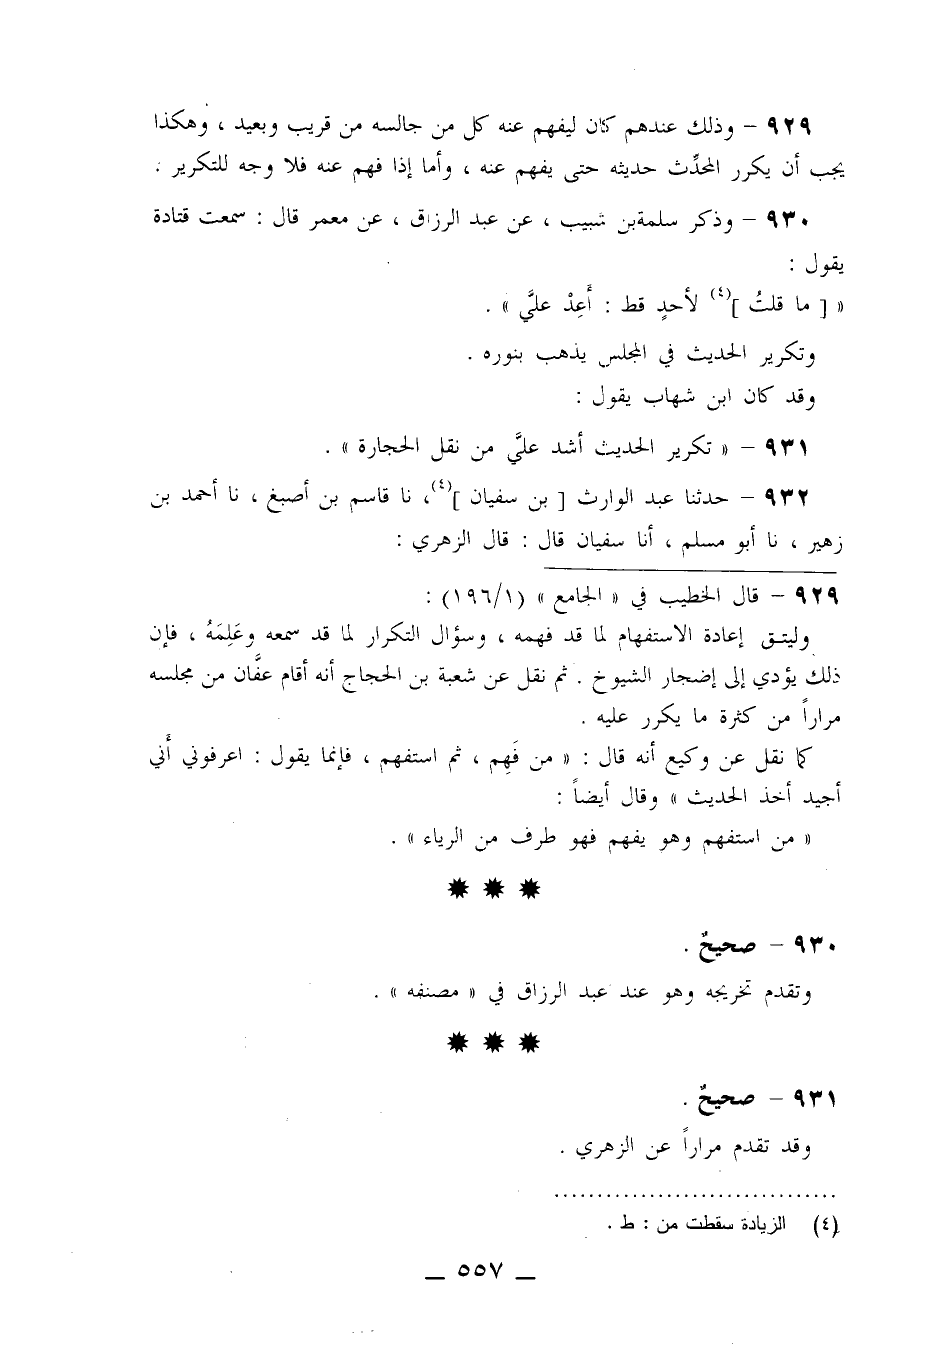 ٩٢٩ – وذلك عندهم كان ليفهم عنه كل من جالسه من قريب وبعيد ، وهكذا
يجب أن يكرر المحدِّث حديثه حتى يفهم عنه ، وأما إذا فهم عنه فلا وجه للتكرير .
٩٣٠ – وذكر سلمةبن شبيب ، عن عبد الرزاق ، عن معمر قال : سمعت قتادة
يقول :
« [ ما قلتُ ](٤) لأحدٍ قط : أَعِدْ عليَّ » .
وتكرير الحديث في المجلس يذهب بنوره .
وقد كان ابن شهاب يقول :
٩٣١ – « تكرير الحديث أشد عليَّ من نقل الحجارة » .
٩٣٢ – حدثنا عبد الوارث [ بن سفيان ](٤)، نا قاسم بن أصبغ ، نا أحمد بن
زهير ، نا أبو مسلم ، أنا سفيان قال : قال الزهري :
٩٢٩ – قال الخطيب في « الجامع » (١٩٦/١) :
وليتق إعادة الاستفهام لما قد فهمه ، وسؤال التكرار لما قد سمعه وعَلِمَهُ ، فإن
ذلك يؤدي إلى إضجار الشيوخ . ثم نقل عن شعبة بن الحجاج أنه أقام عفَّان من مجلسه
مراراً من كثرة ما يكرر عليه .
كما نقل عن وكيع أنه قال : « من فَهِم ، ثم استفهم ، فإنما يقول : اعرفوني أَني
أجيد أخذ الحديث » وقال أيضاً :
« من استفهم وهو يفهم فهو طرف من الرياء » .
✸ ✸ ✸
٩٣٠ – صحيحٌ .
وتقدم تخريجه وهو عند عبد الرزاق في « مصنفه » .
✸ ✸ ✸
٩٣١ – صحيحٌ .
وقد تقدم مراراً عن الزهري .
(٤) الزيادة سقطت من : ط .
ـ ٥٥٧ ـ